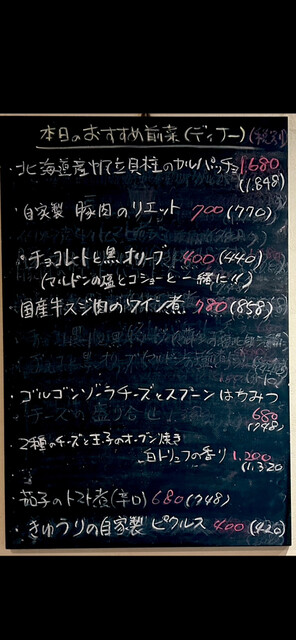 本日のおすすめ前菜(ディナー)(税別)
・北海道産帆立貝柱のカルパッチョ 1,680
(1.848)
・自家製 豚肉のリエット 700(770)
・チョコレートと黒オリーブ 400(440)
(マルドンの塩とコショーと一緒に!!)
国産牛スジ肉のワイン煮 780(858)
・ゴルゴンゾーラチーズとスプーンはちみつ
680
(748)
・2種のチーズと玉子のオーブン焼き
白トリュフの香り 1,200
(1.320
・茄子のトマト煮(辛口)680(748)
・きゅうりの自家製 ピクルス 400(420)